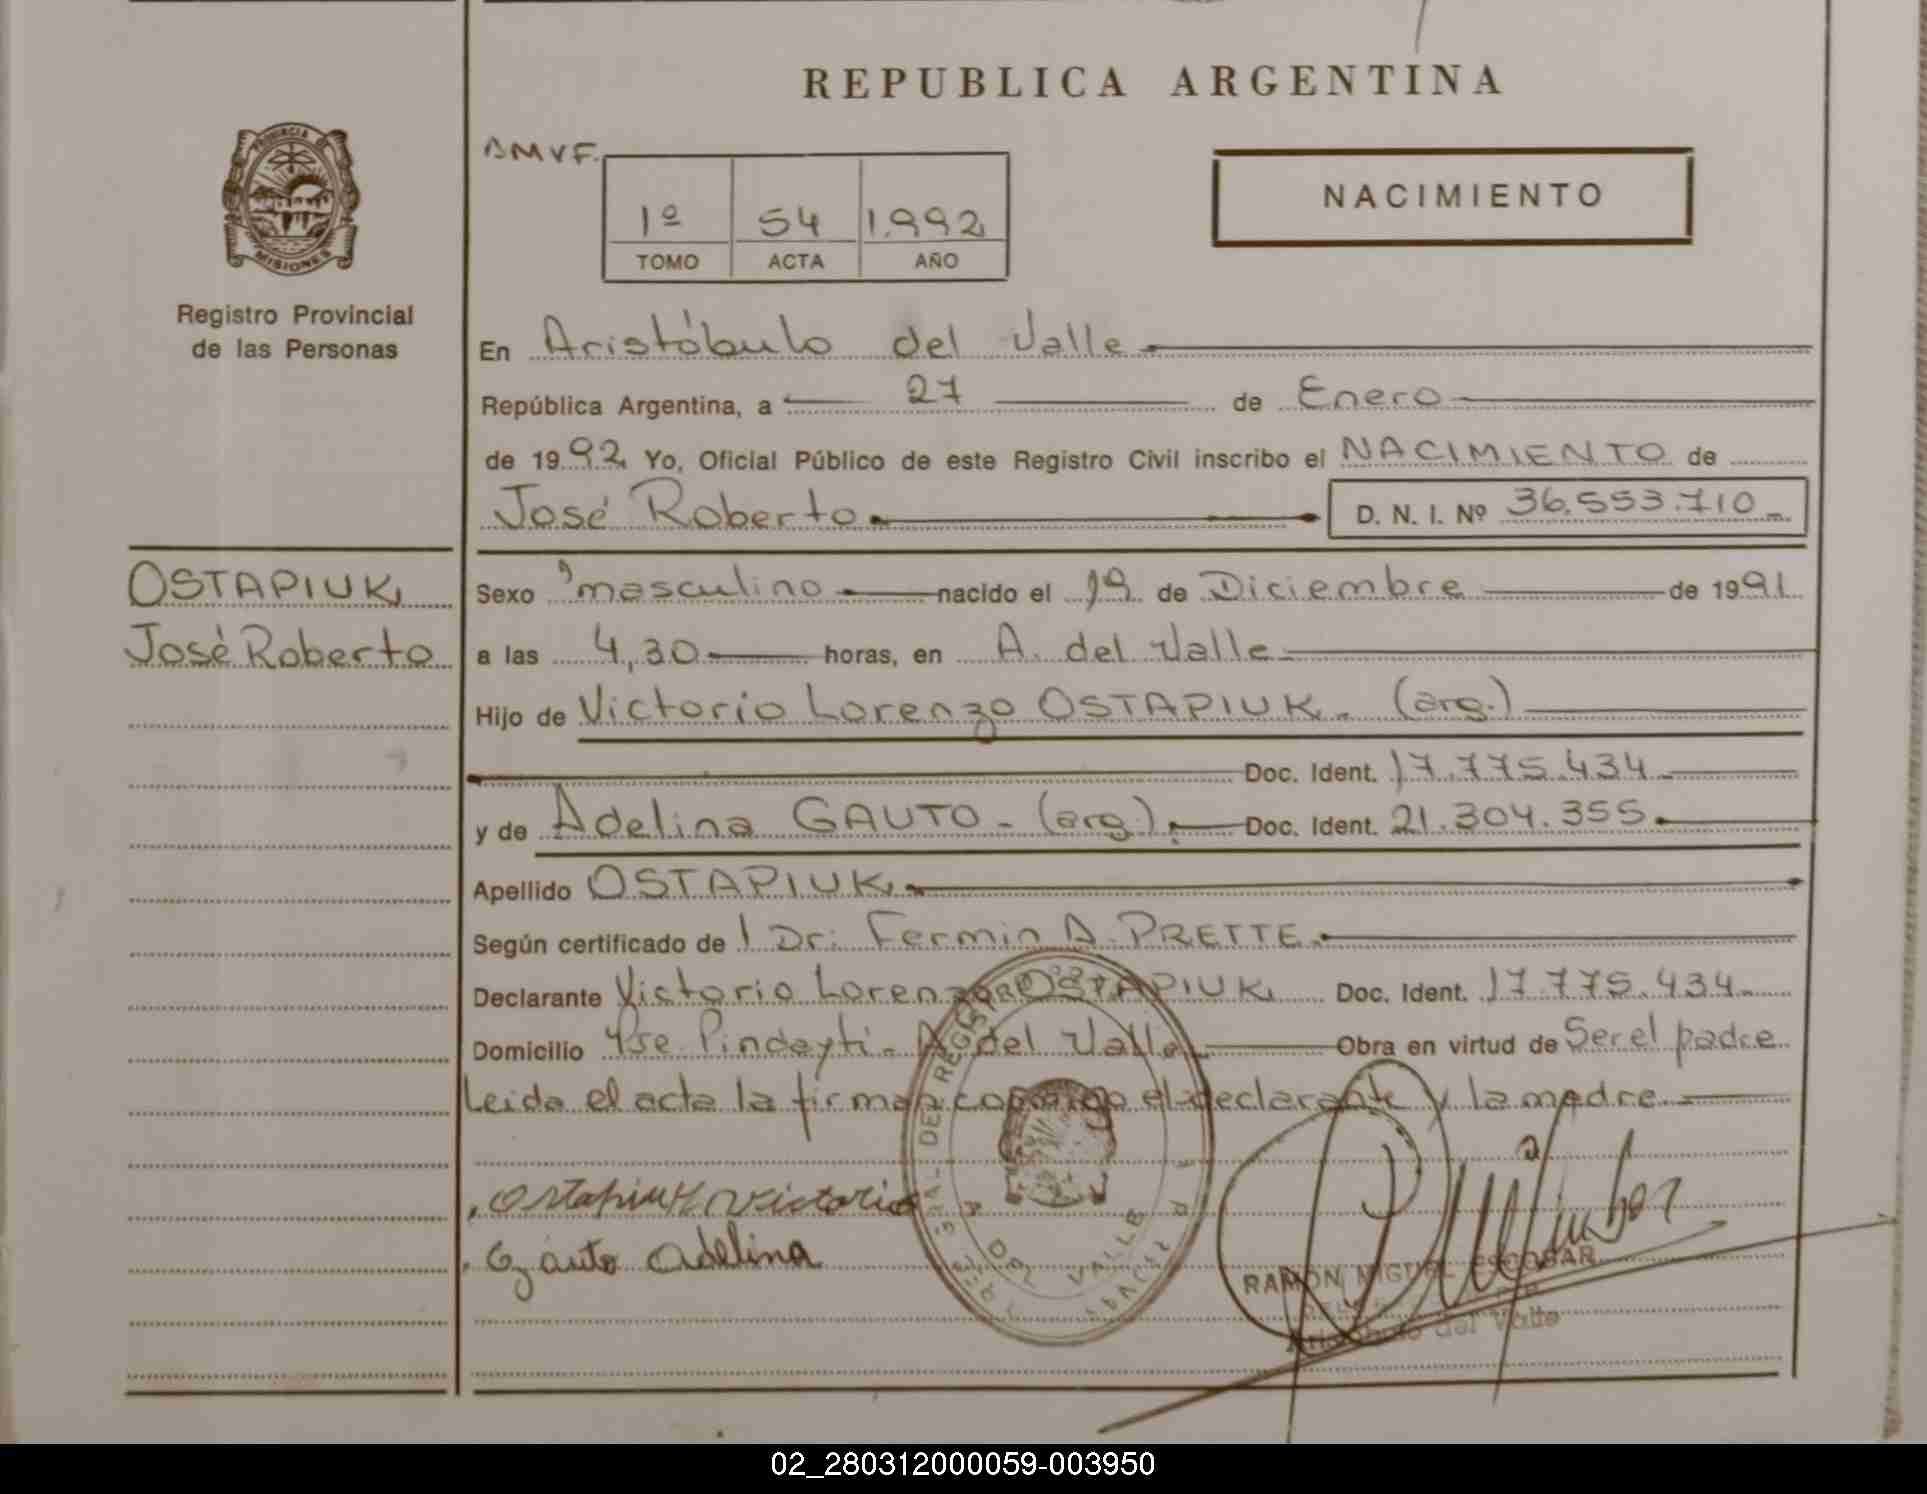 REPUBLICA ARGENTINA
PROVINCIA DE
MISIONES
Registro Provincial
de las Personas
AMVF.
1º 54 1.992
TOMO ACTA AÑO
NACIMIENTO
En Aristóbulo del Valle
República Argentina, a 27 de Enero
de 1992 Yo, Oficial Público de este Registro Civil inscribo el NACIMIENTO de
José Roberto D. N. I. Nº 36.553.710
OSTAPIUK
José Roberto
Sexo masculino nacido el 19 de Diciembre de 1991
a las 4,30 horas, en A. del Valle
Hijo de Victorio Lorenzo OSTAPIUK. (arg.)
Doc. Ident. 17.775.434
y de Adelina GAUTO - (arg.). Doc. Ident. 21.304.355
Apellido OSTAPIUK
Según certificado de Dr. Fermin A. PRETTE
Declarante Victorio Lorenzo OSTAPIUK Doc. Ident. 17.775.434
Domicilio Pindayti - A del Valle Obra en virtud de Ser el padre
Leida el acta la firman conmigo el declarante y la madre
Ostapiuk Victorio
Gauto Adelina
DEL REGISTRO
DEL VALLE
RAMON MIGUEL ESCOBAR
Aristobulo del Valle
02_280312000059-003950